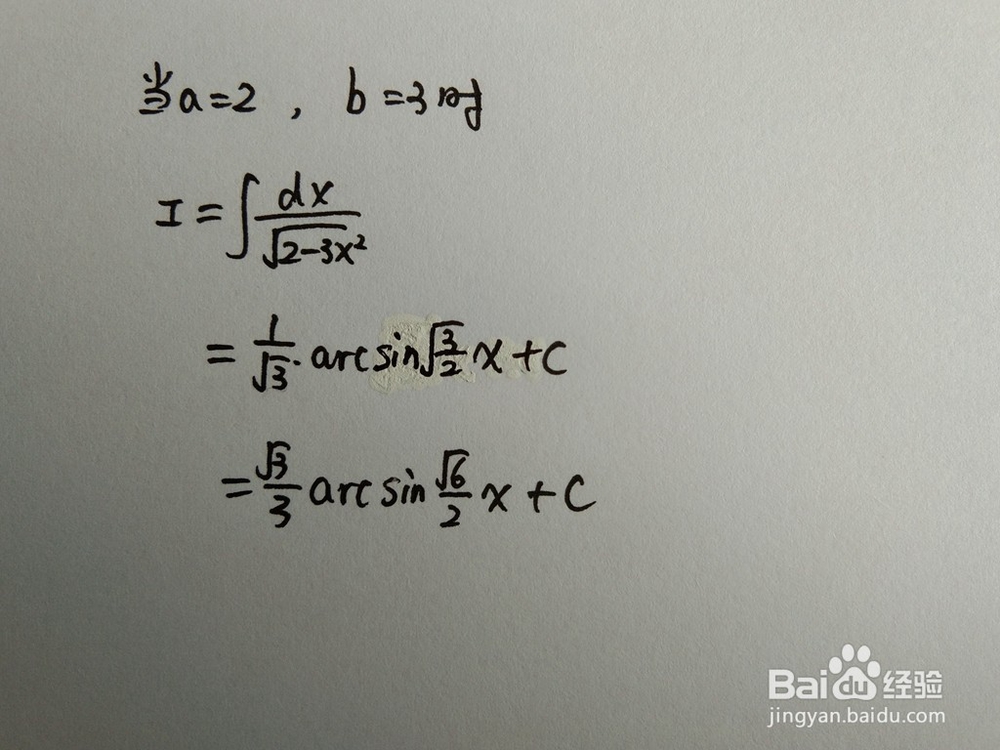 当a=2，b=3时
I=∫dx/√(2-3x²)
=1/√3·arcsin√(3/2)x+C
=√3/3 arcsin √6/2 x+C
Baidu经验
jingyan.baidu.com